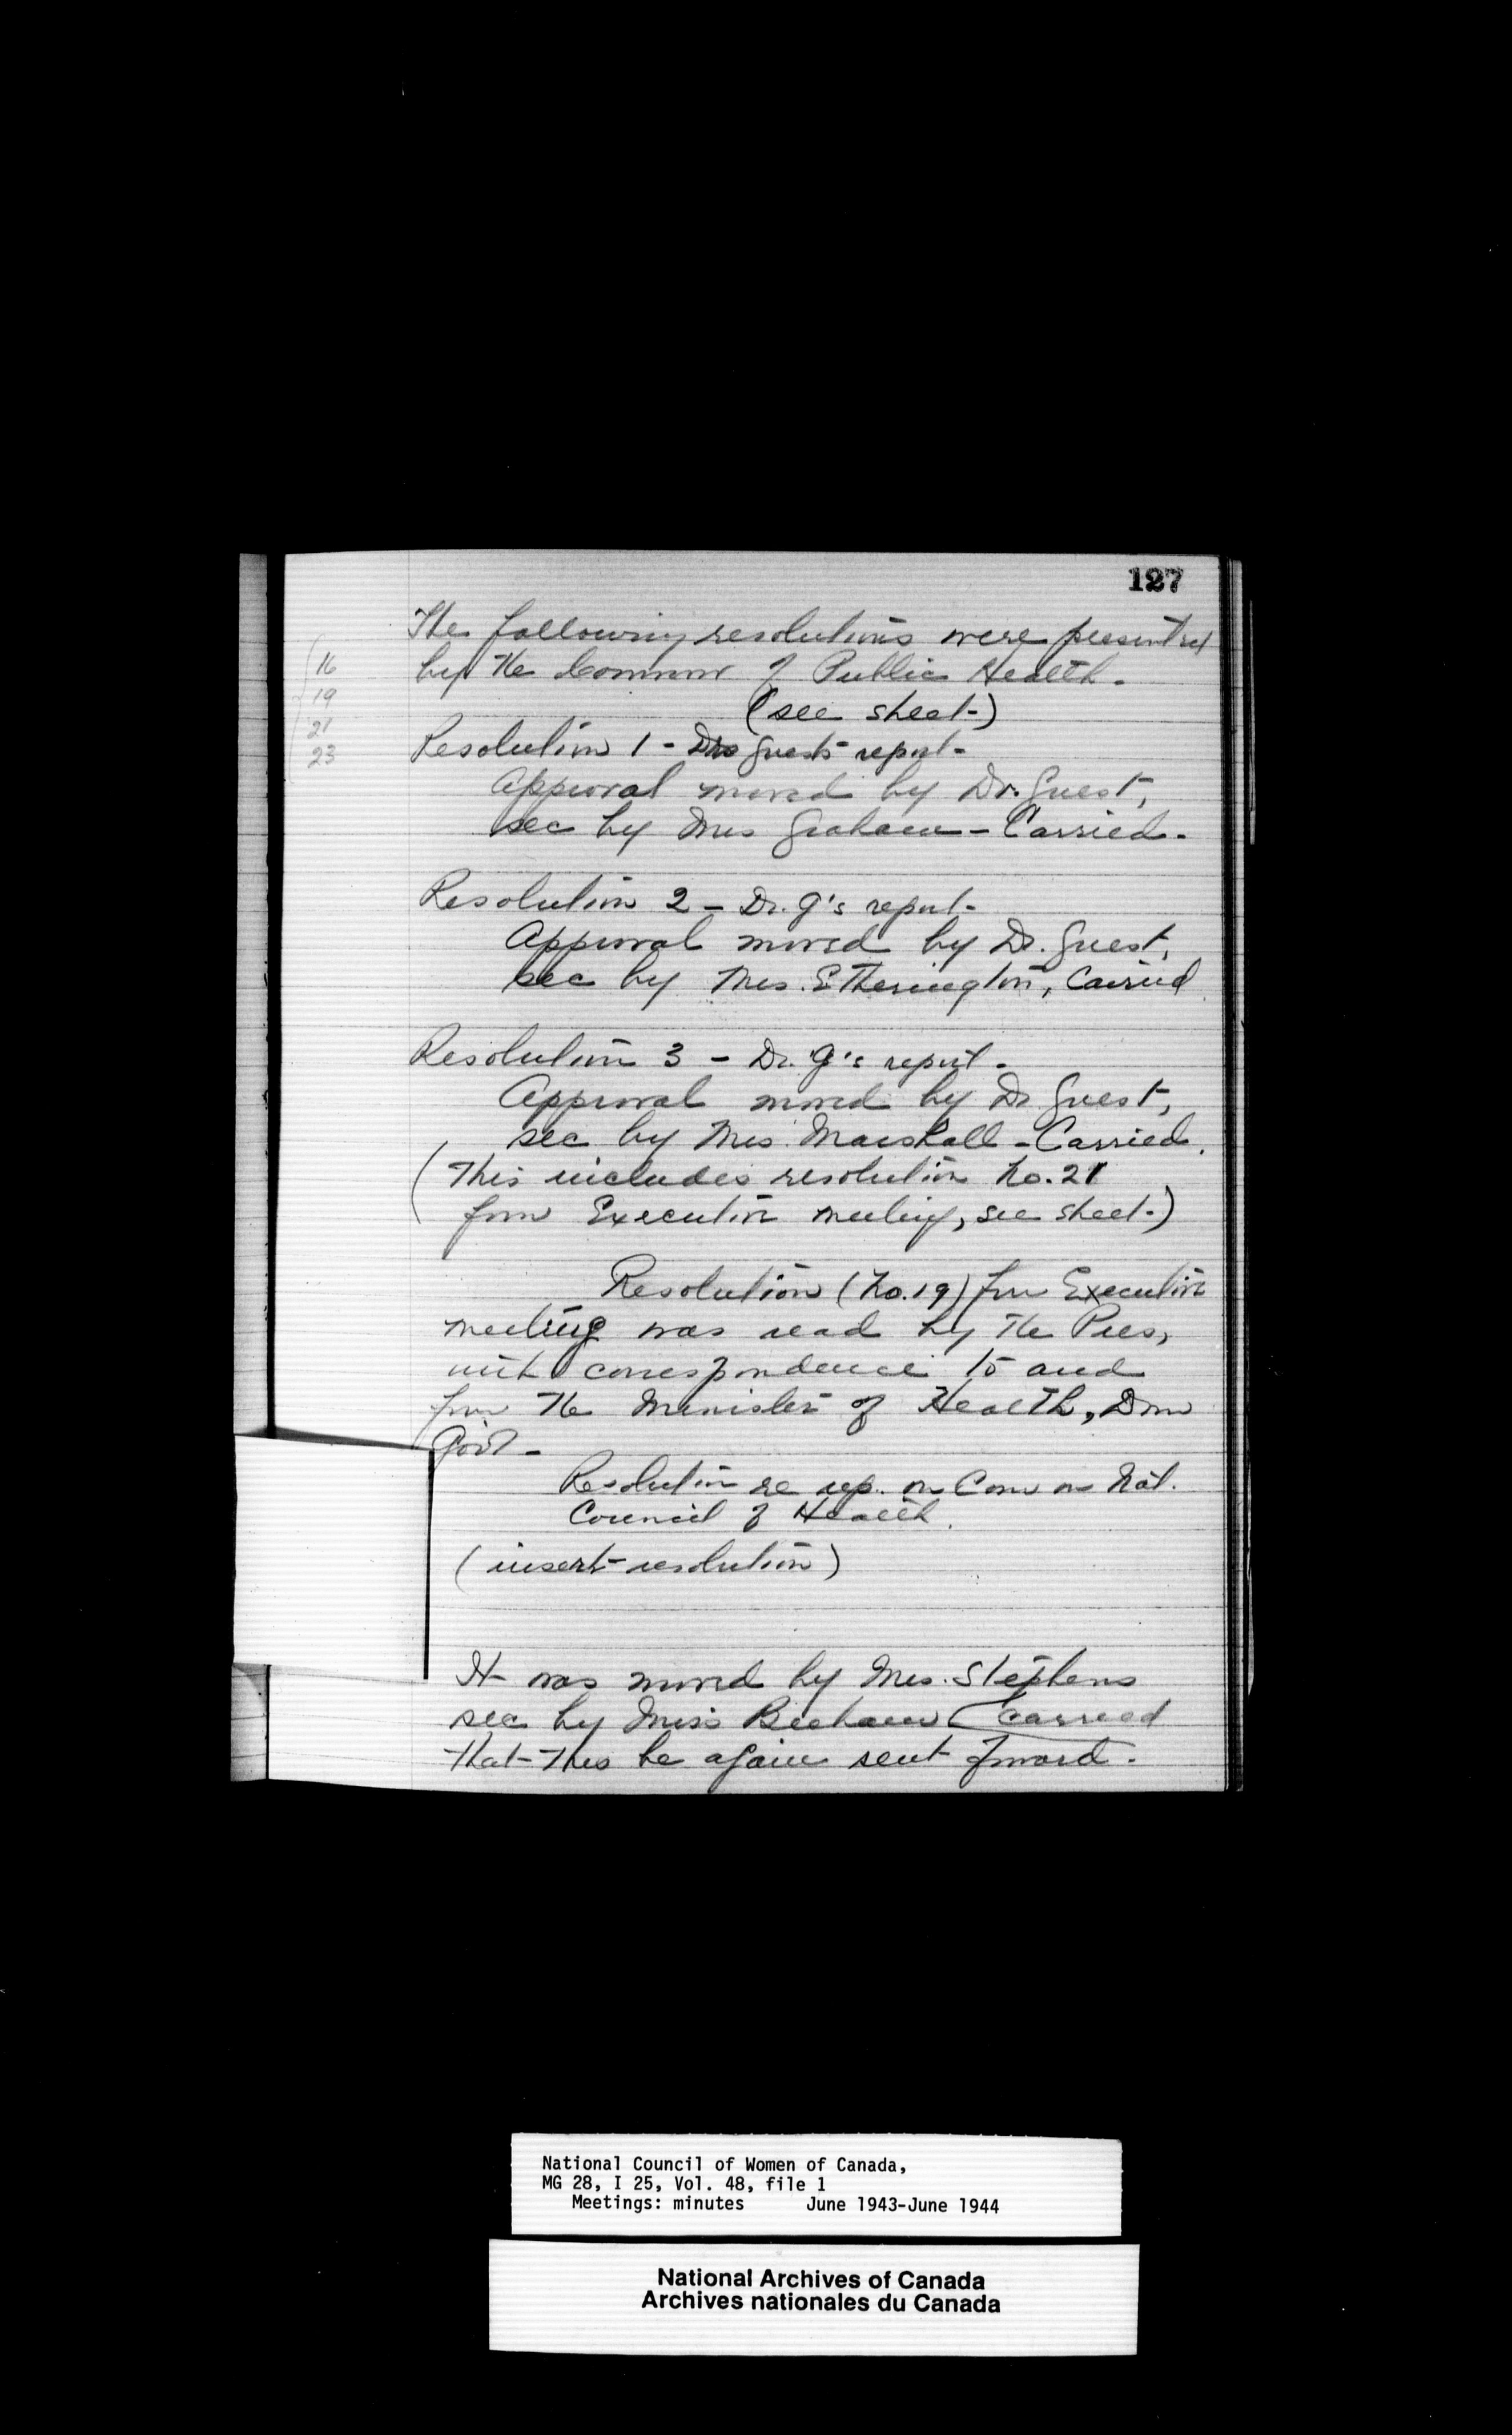 127
The following resolutions were presented
by the Convenor of Public Health.
(see sheet-)
16
19
21
23
Resolution 1 - Guest's report-
Approval moved by Dr. Guest,
sec by Mrs Graham - Carried-
Resolution 2 - Dr. G's report-
Approval moved by Dr. Guest,
sec by Mrs. Etherington, Carried
Resolution 3 - Dr. G's report-
Approval moved by Dr Guest,
sec by Mrs. Marshall - Carried.
(This includes resolution No. 21
from Executive meeting, see sheet-)
Resolution (No. 19) from Executive
meeting was read by the Pres,
with correspondence to and
from the Minister of Health, Dom
Gov't -
Resolution re rep. on Com on Nat.
Council of Health.
(insert resolution)
It was moved by Mrs. Stephens
sec by Miss (carried
that this be again sent forward.
National Council of Women of Canada,
MG 28, I 25, Vol. 48, file 1
Meetings: minutes June 1943-June 1944
National Archives of Canada
Archives nationales du Canada